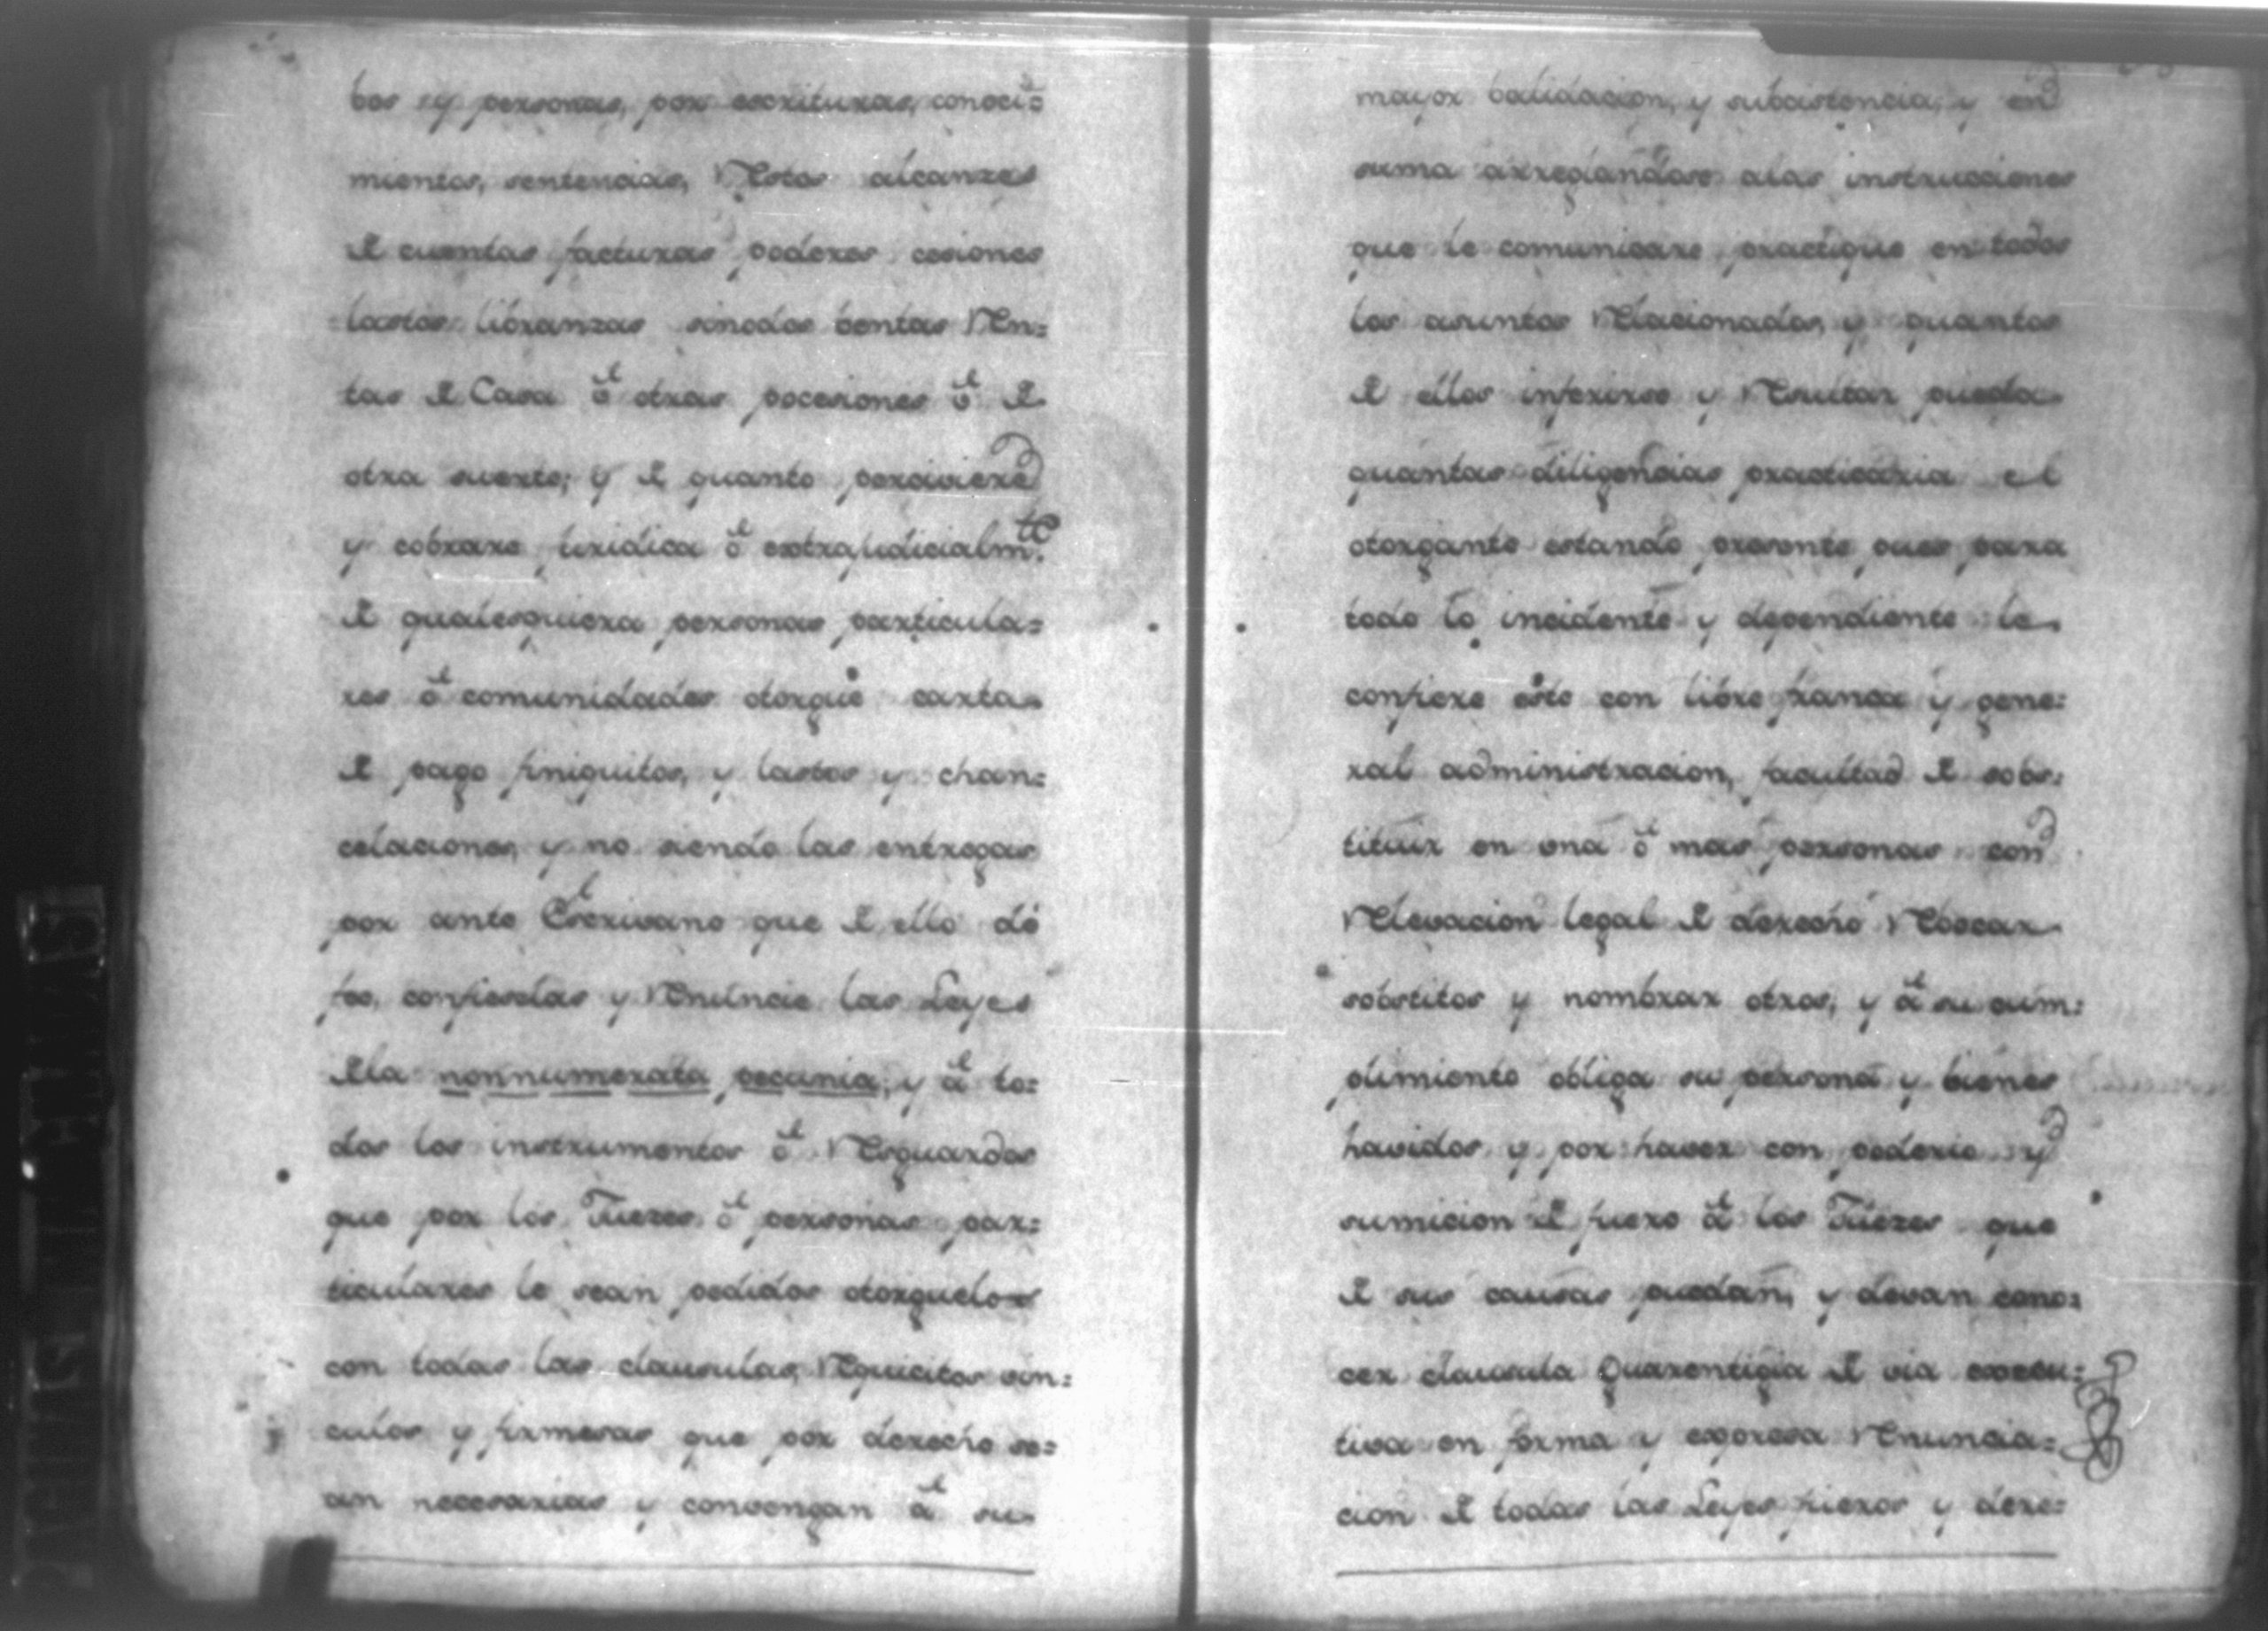 bos y personas, por escrituras, conoci=
mientos, sentencias, Restos alcanzes
de cuentas facturas poderes cesiones
lastos libranzas sinodos bentas Ren=
tas de Casa ó otras pocesiones ó de
otra suerte; y de quanto perciviere
y cobrare juridica ó extrajudicialm.te
de qualesquiera personas particula=
res ó comunidades otorgue carta
de pago finiquitos, y lastos y chan=
celaciones, y no siendo las entregas
por ante Escrivano que de ello dé
fee, confieselas y Renuncie las Leyes
dela nonnumerata pecunia, y á to=
dos los instrumentos ó Resguardos
que por los Juezes ó personas par=
ticulares le sean pedidos otorguelos
con todas las clausulas, Requicitos vin=
culos y firmesas que por derecho se=
an necesarias y convengan á su
mayor balidacion, y subcistencia, y en
suma arreglandose alas instrucciones
que le comunicare practique en todos
los asuntos Relacionados, y quantos
de ellos inferirse y Resultar pueda
quantas diligencias practicaria el
otorgante estando presente pues para
todo lo incidente y dependiente le
confiere este con libre franca y gene=
ral administracion, facultad de sobs=
tituir en una ó mas personas con
Relevacion legal de derecho Rebocar
sobstitos y nombrar otros, y á su cum=
plimiento obliga su persona y bienes
havidos y por haver con poderio y
sumicion de fuero á los Juezes que
de sus causas puedan, y devan cono=
cer clausula quarentigia de via execu=
tiva en forma y expresa Renuncia=
cion de todas las Leyes fueros y dere=